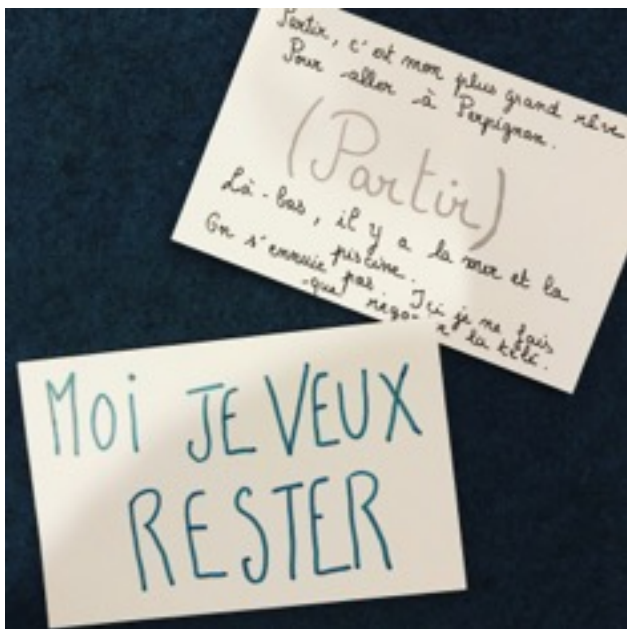 Partir, c'est mon plus grand rêve
Pour aller à Perpignan.
(Partir)
Là-bas, il y a la mer et la
piscine.
On s'ennuie pas. Ici je ne fais
que la télé.
MOI JE VEUX
RESTER